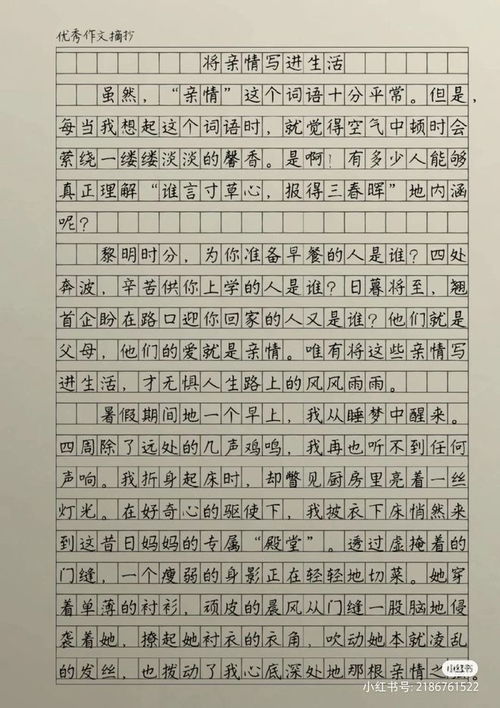 优秀作文摘抄
将亲情写进生活
虽然，“亲情”这个词语十分平常。但是，
每当我想起这个词语时，就觉得空气中顿时会
萦绕一缕缕淡淡的馨香。是啊！有多少人能够
真正理解“谁言寸草心，报得三春晖”地内涵
呢？
黎明时分，为你准备早餐的人是谁？四处
奔波，辛苦供你上学的人是谁？日暮将至，翘
首企盼在路口迎你回家的人又是谁？他们就是
父母，他们的爱就是亲情。唯有将这些亲情写
进生活，才无惧人生路上的风风雨雨。
暑假期间地一个早上，我从睡梦中醒来。
四周除了远处的几声鸡鸣，我再也听不到任何
声响。我折身起床时，却瞥见厨房里亮着一丝
灯光。在好奇心的驱使下，我披衣下床悄然来
到这昔日妈妈的专属“殿堂”。透过虚掩着的
门缝，一个瘦弱的身影正在轻轻地切菜。她穿
着单薄的衬衫，顽皮的晨风从门缝一股脑地侵
袭着她，撩起她衬衣的衣角，吹动她本就凌乱
的发丝，也拨动了我心底深处地那根亲情之。
小红书
小红书号：2186761522